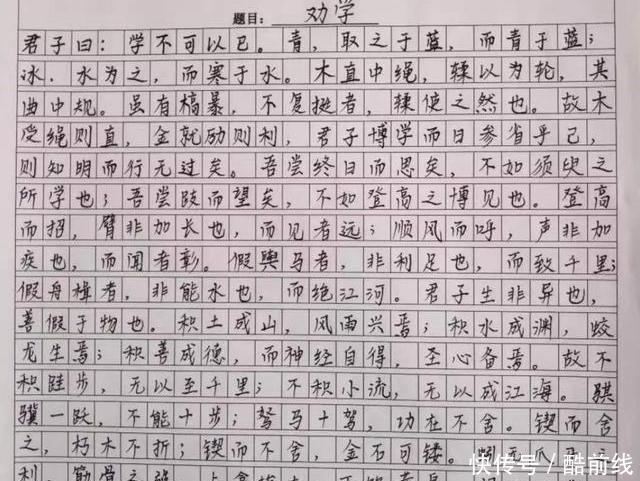 题目：劝学
君子曰：学不可以已。青，取之于蓝，而青于蓝；
冰．水为之，而寒于水。木直中绳，輮以为轮，其
曲中规。虽有槁暴，不复挺者，輮使之然也。故木
受绳则直，金就励则利，君子博学而日参省乎己，
则知明而行无过矣。吾尝终日而思矣，不如须臾之
所学也；吾尝跂而望矣，不如登高之博见也。登高
而招，臂非加长也，而见者远；顺风而呼，声非加
疾也，而闻者彰。假舆马者，非利足也，而致千里；
假舟楫者，非能水也，而绝江河。君子生非异也，
善假于物也。积土成山，风雨兴焉；积水成渊，蛟
龙生焉；积善成德，而神经自得，圣心备焉。故不
积跬步，无以至千里；不积小流，无以成江海。骐
骥一跃，不能十步；驽马十驾，功在不舍。锲而舍
之，朽木不折；锲而不舍，金石可镂。
利，筋骨之强，上食
快传号／酷前线